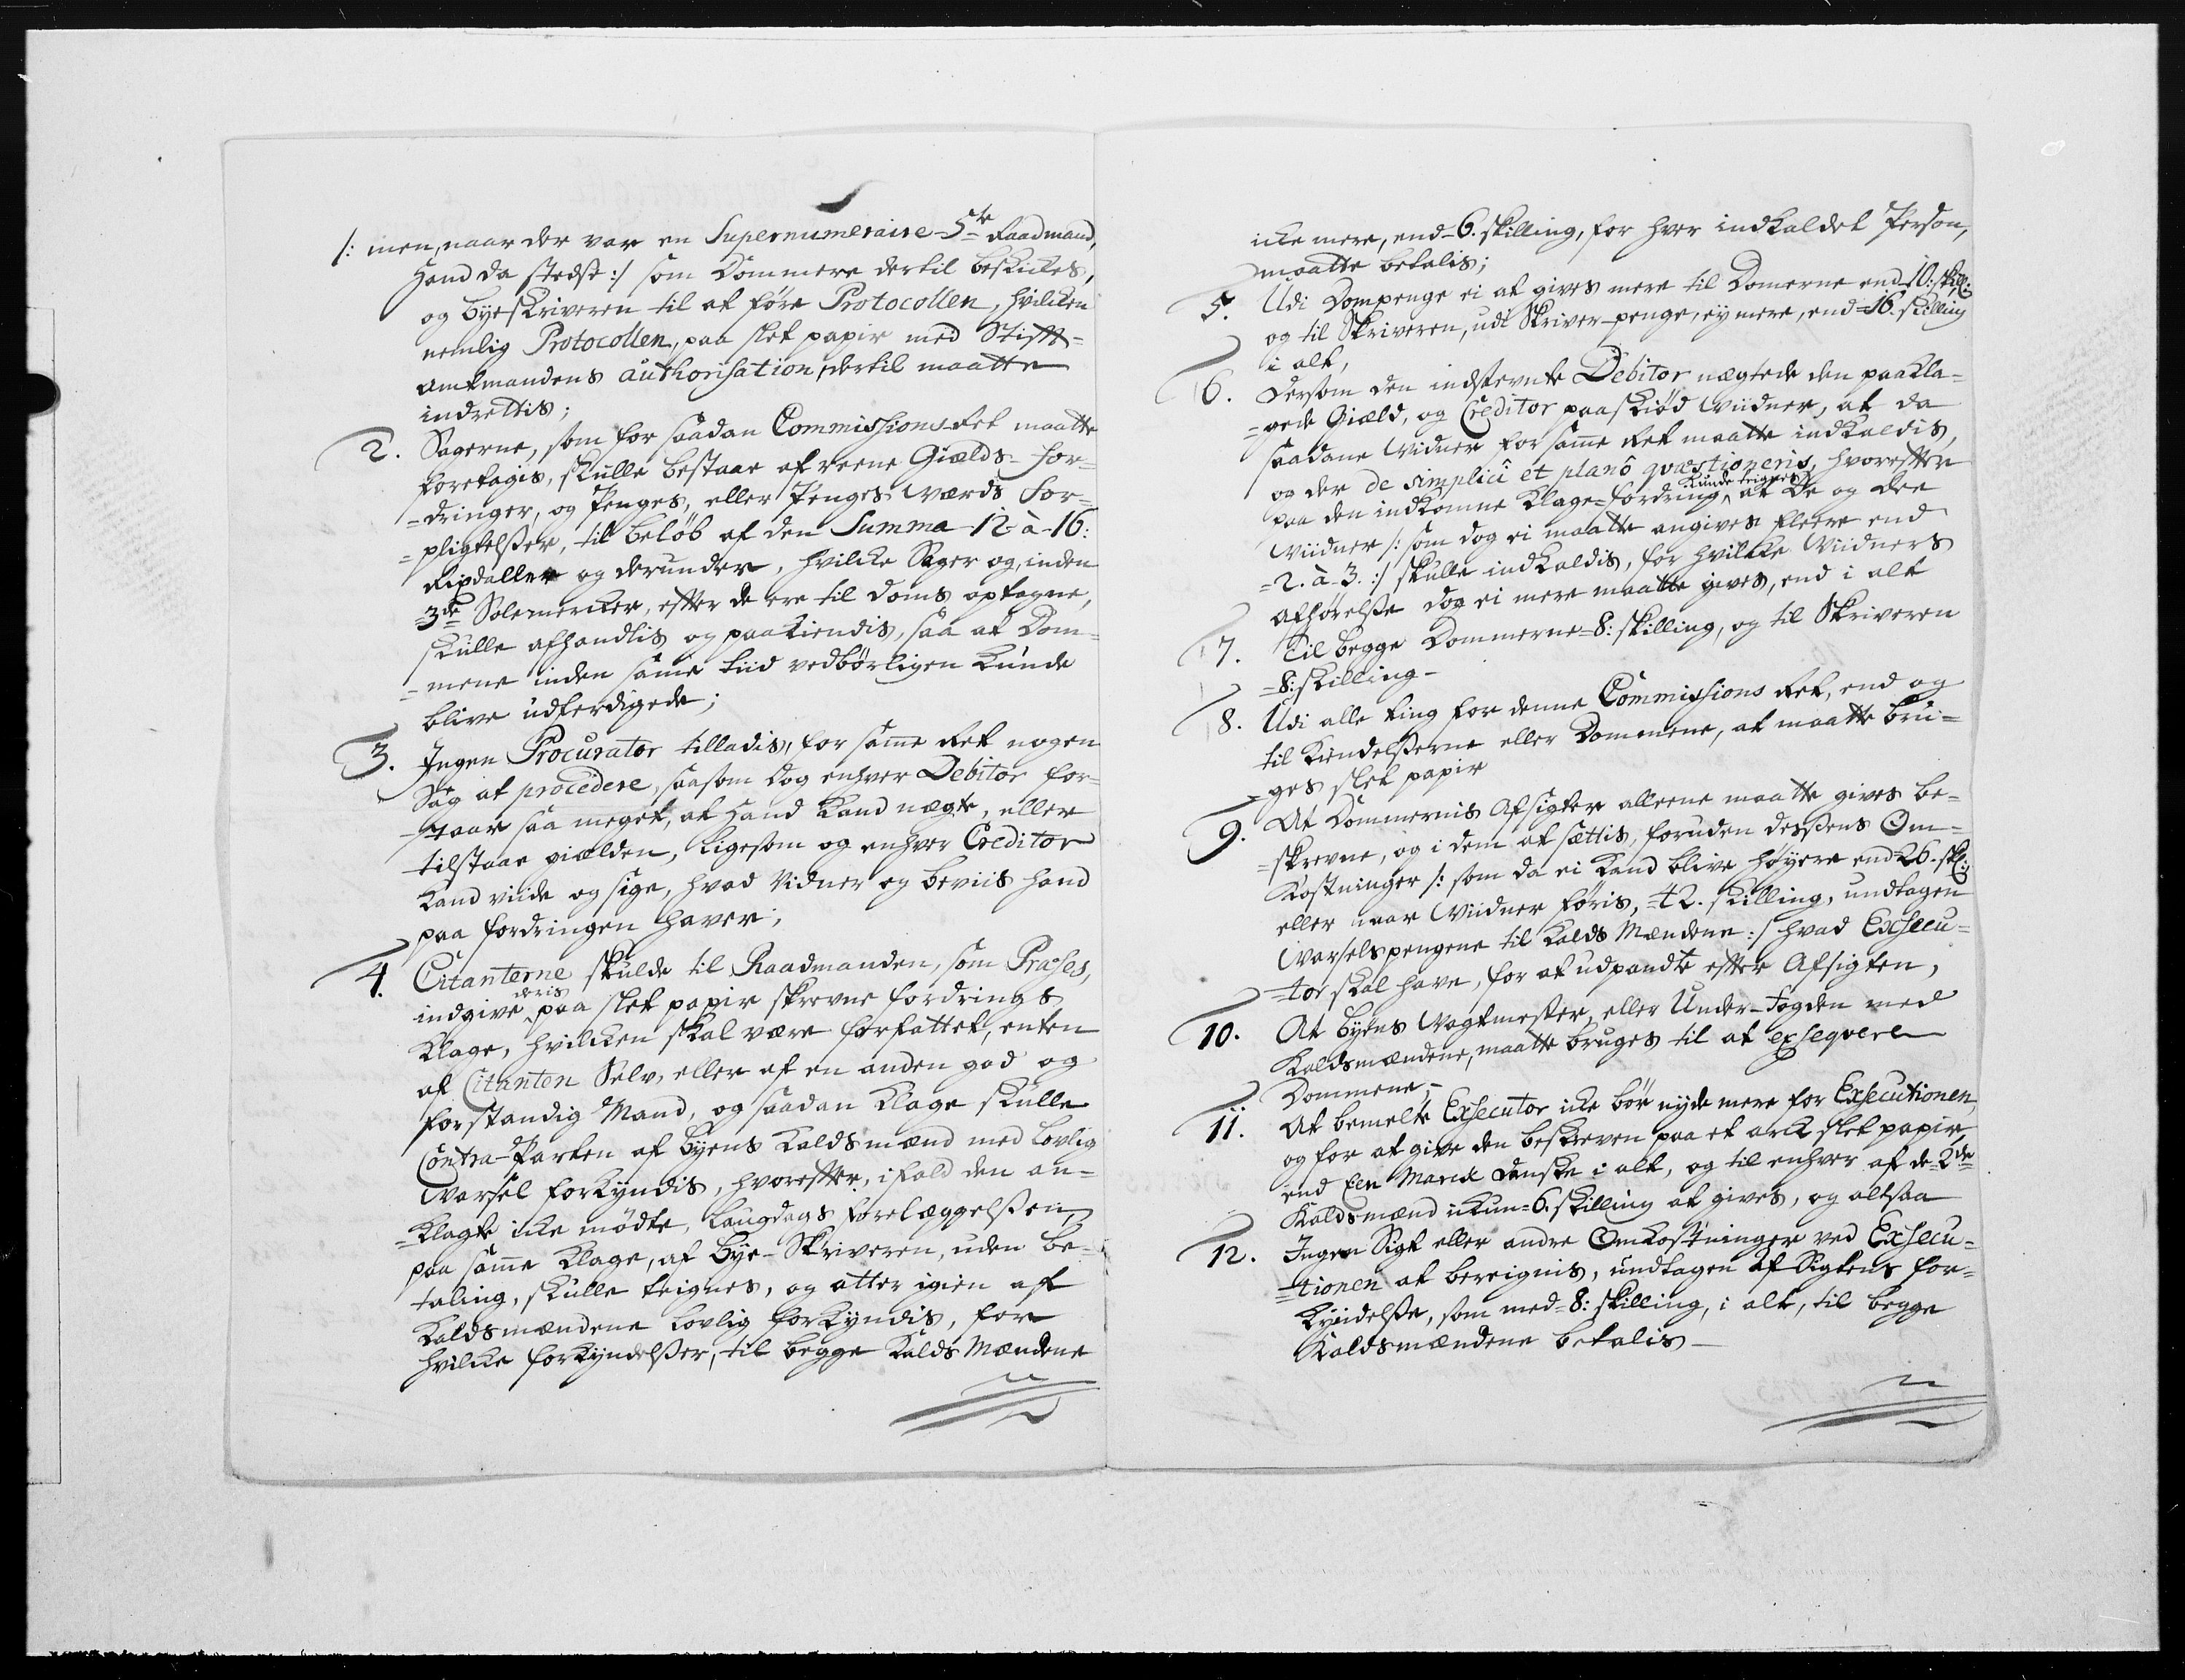 /: men, naar der var en Supernumeraire 5te Raadmand,
Hand da stedse :/ som Dommere dertil beskickes,
og byeskriveren til at føre Protocollen, hvilcken
nemlig Protocollen, paa slet papir med Stift-
amtmandens authorisation, dertil maatte
indrettis;
2. Sagerne, som for saadan Commissions Ret maatte
foretagis, skulle bestaae af reene Giælds-for-
=dringer, og Penges, eller Penges værds For-
=pligtelsser, til beløb af den Summa 12 à 16:
Rixdaller og derunder, hvilcke Sager og, inden
3de Solemercker, efter de ere til doms optagne,
skulle afhandlis og paakiendis, saa at Dom-
=mene inden samme tiid vedbørligen kunde
blive udferdigede;
3. Ingen Procurator tilladis, for samme Ret nogen
Sag at procedere, saasom dog enhver Debitor for-
=staar saa meget, at hand kand nægte, eller
tilstaae giælden, ligesom og enhver Creditor
kand viide og sige, hvad Vidner og beviis hand
paa fordringen haver;
4. Citanterne skulde til Raadmanden, som Præses,
indgive deris paa slet papir skrevne fordrings
Klage, hvilcken skal være forfattet, enten
af Citanten Selv, eller af en anden god og
forstandig Mand, og saadan Klage skulle
Contra-Parten af byens Kaldsmænd med lovlig
Varsel forkyndis, hvorefter, ifald den an-
=klagte icke mødte, Laugdags forelæggelssen
paa samme Klage, af Bye-Skriveren, uden be-
taling, skulle teignes, og atter igien af
Kaldsmændene lovlig forkyndis, for
hvilcke forkyndelsser, til begge Kalds Mændene
icke mere, end 6. skilling, for hver indkaldet Person,
maatte betalis;
5. Udi Dompenge ei at gives mere til Domerne end 10: skill:
og til Skriveren, udi Skriver-penge, ey mere, end 16. skilling
i alt,
6. Dersom den indstevnte Debitor nægtede den paakla-
=gede Giæld, og Creditor paaskiød Viidner, at da
saadane Vidner for samme Ret maatte indkaldis,
og der de simplici et planô qvæstioneris, hvorefter
paa den indkomne Klage-fordring kunde teignes, at de og dee
Viidner /: som dog ei maatte angives fleere end
2. à 3. :/ skulle indkaldis, for hvilcke Viidners
afhørelsse dog ei mere maatte gives, end i alt
7. Til begge Dommerne 8: skilling, og til Skriveren
8: skilling-
8. Udi alle ting for denne Commissions Ret, end og
til Kiendelsserne eller Dommene, at maatte bru-
=ges slet papir
9. At Dommernis Afsigter alleene maatte gives be-
=skrevne, og i dem at sættis, foruden dessens Om-
Kostninger /: som da ei kand blive høyere end 26. skl:
eller naar Viidner føris, 42. skilling, undtagen
Varselspengene til Kalds Mændene :/ hvad Exsecu-
=tor skal have, for at udpandte efter Afsigten,
10. At byens Vagtmester, eller Under-Fogden med
Kaldsmændene, maatte bruges til at exseqvere
Dommene,-
11. At bemelte Exsecutor icke bør nyde mere for Exsecutionen,
og for at give den beskreven paa et arck slet papir,
end Een Marck danske i alt, og til enhver af de 2de
Kaldsmænd ickun 6. skilling at gives, og altsaa
12. Ingen Sigt eller andre Omkostninger ved Exsecu-
=tionen at bereignis, undtagen Af Sigtens for-
kyndelsse, som med 8: skilling, i alt, til begge
Kaldsmændene betalis-